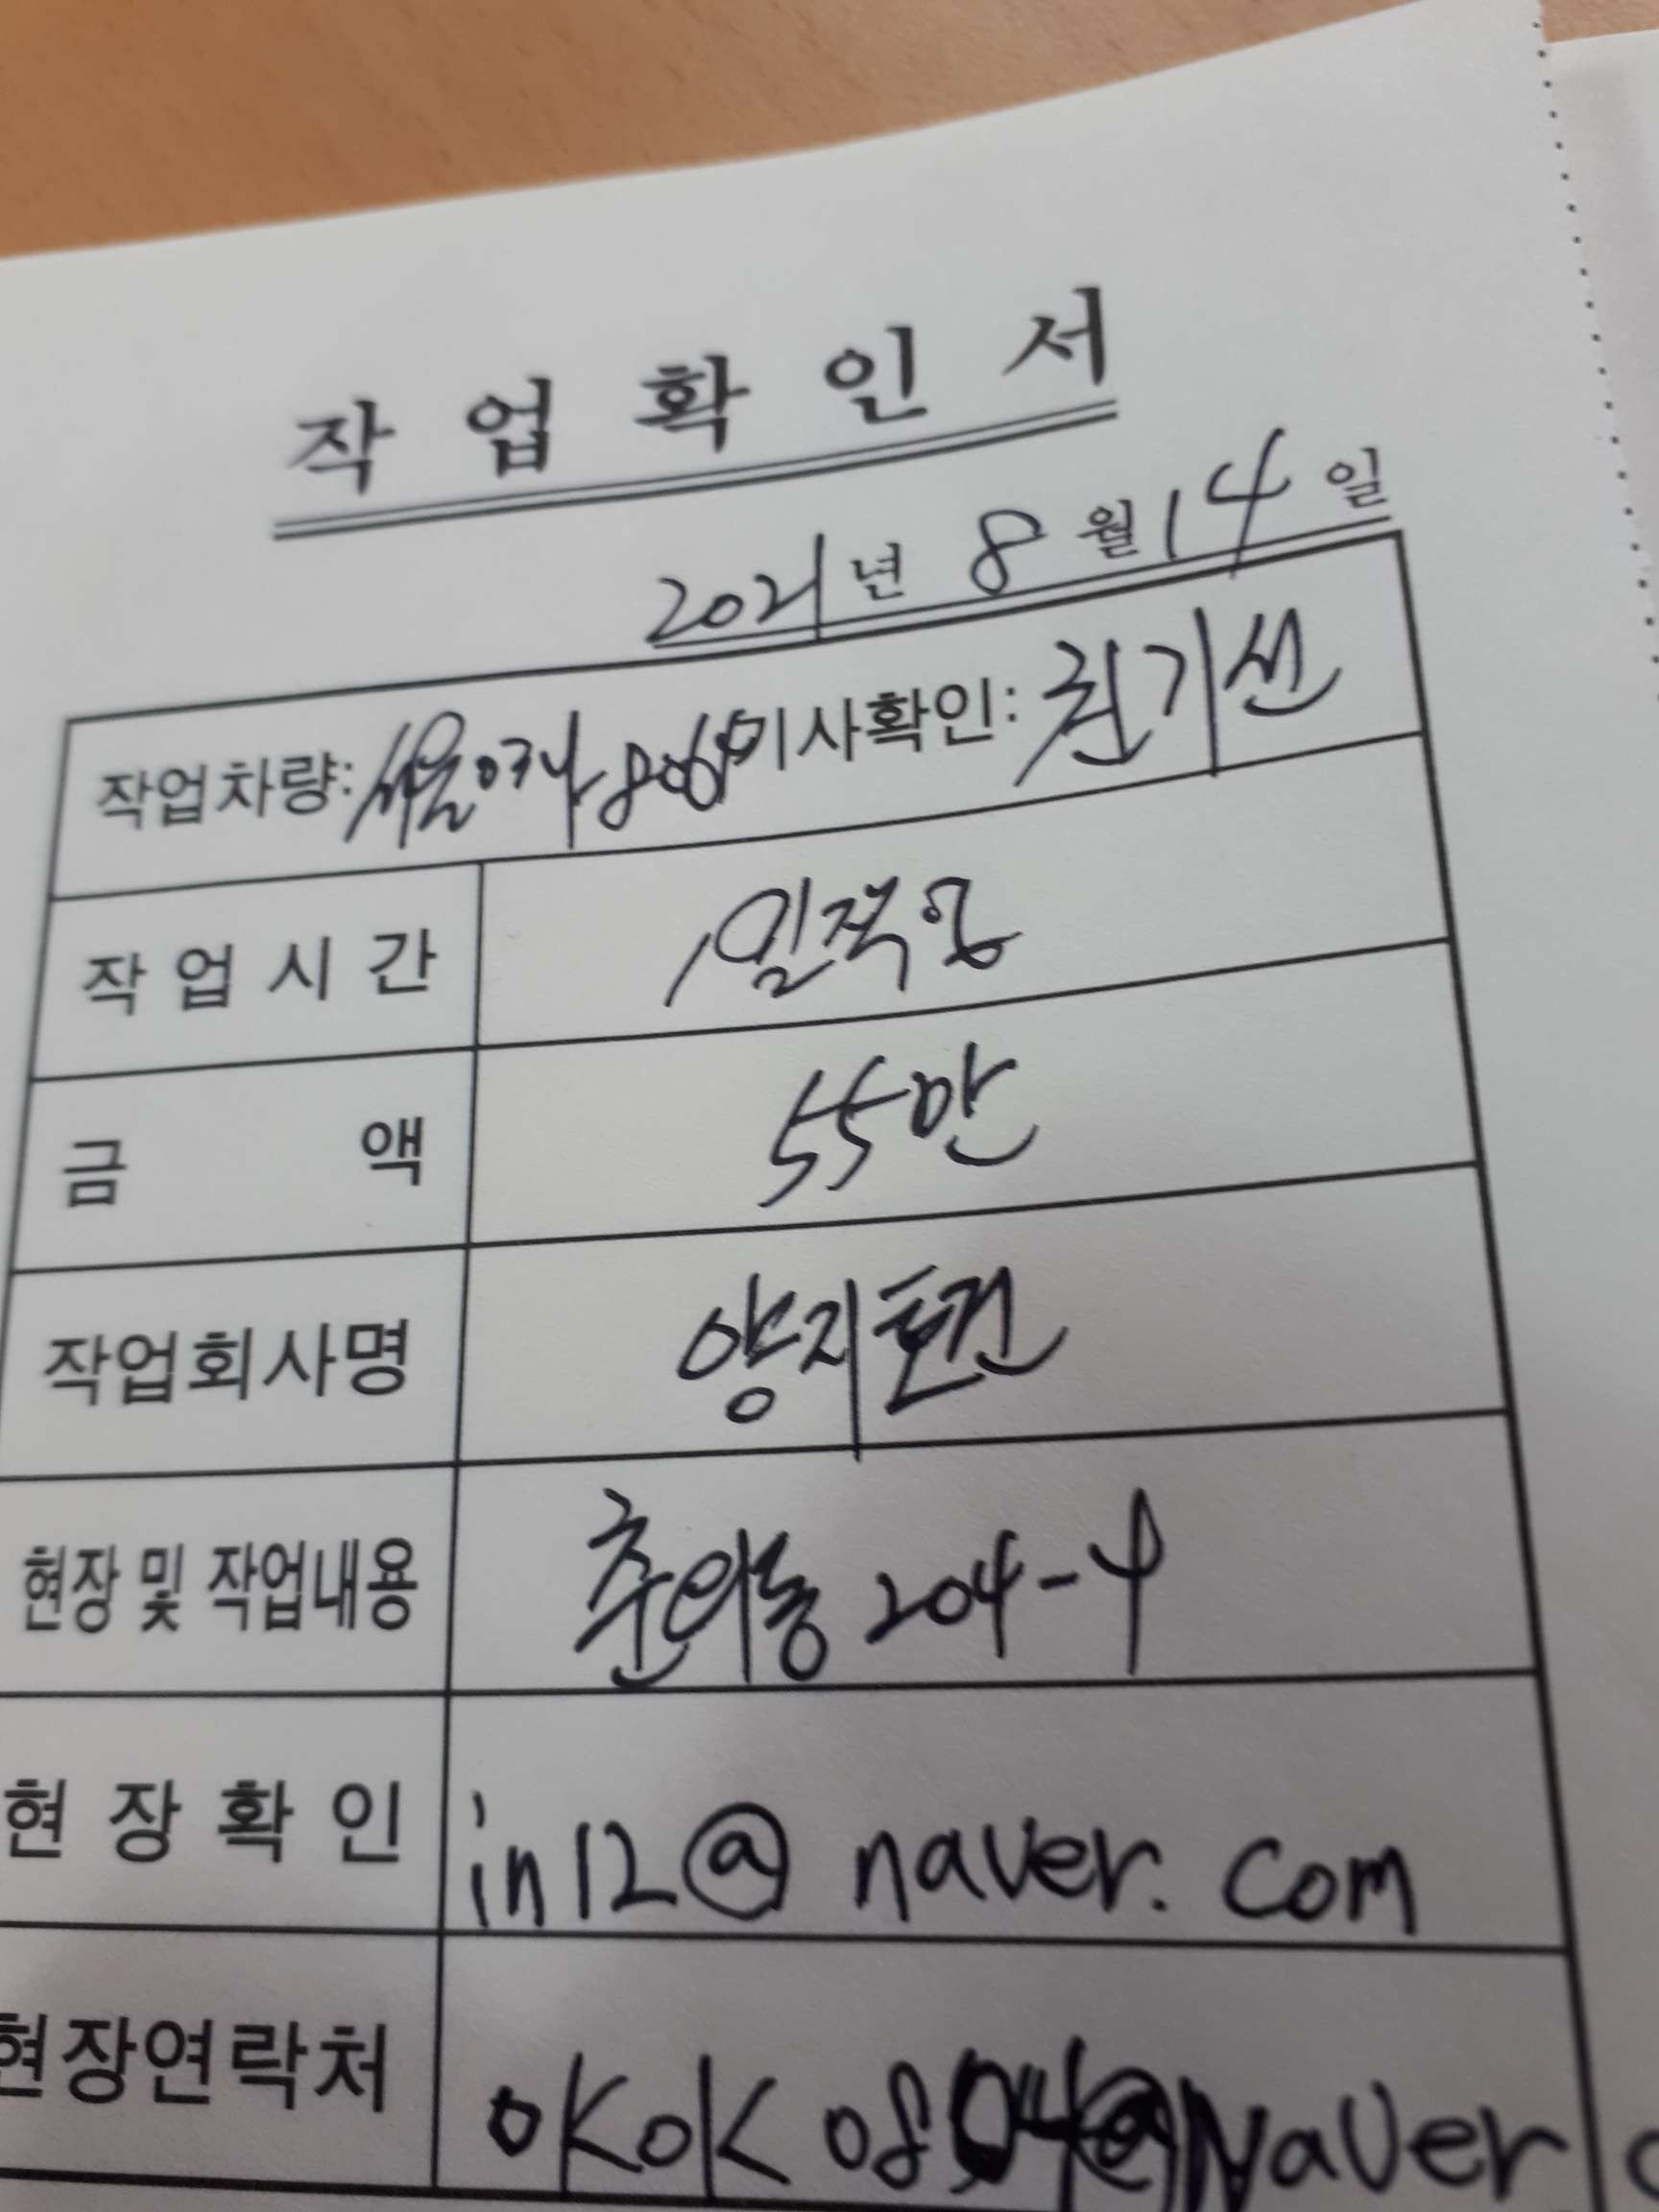 작업확인서
2021년 8월 14일
작업차량: 서울03가 기사확인: 권기선
작업시간
금액 55만
작업회사명 양지토건
현장 및 작업내용 춘의동 204-4
현장확인 in12@naver.com
현장연락처 okok0804@Naver